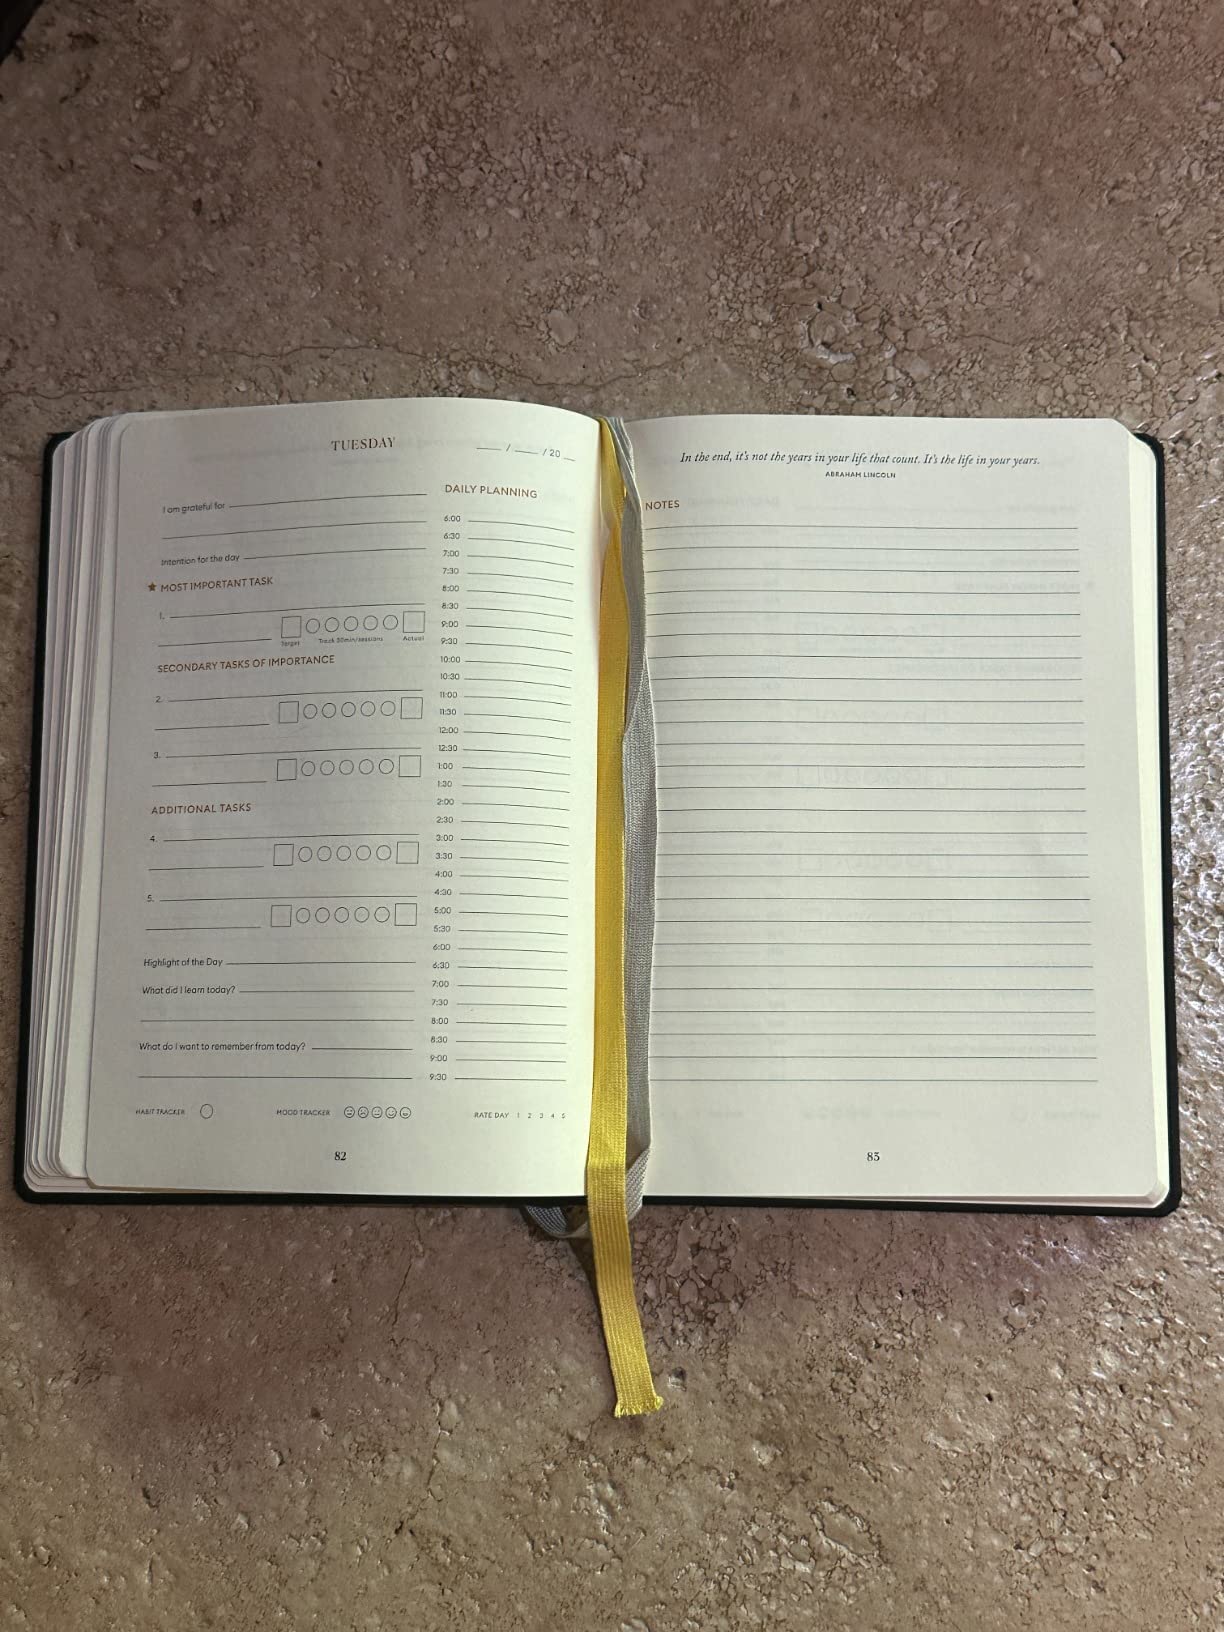 TUESDAY
/ / 20
I am grateful for
Intention for the day
MOST IMPORTANT TASK
1.
Target Track 30min/sessions Actual
SECONDARY TASKS OF IMPORTANCE
2.
3.
ADDITIONAL TASKS
4.
5.
Highlight of the Day
What did I learn today?
What do I want to remember from today?
DAILY PLANNING
6:00
6:30
7:00
7:30
8:00
8:30
9:00
9:30
10:00
10:30
11:00
11:30
12:00
12:30
1:00
1:30
2:00
2:30
3:00
3:30
4:00
4:30
5:00
5:30
6:00
6:30
7:00
7:30
8:00
8:30
9:00
9:30
HABIT TRACKER
MOOD TRACKER
RATE DAY 1 2 3 4 5
82
In the end, it's not the years in your life that count. It's the life in your years.
ABRAHAM LINCOLN
NOTES
83